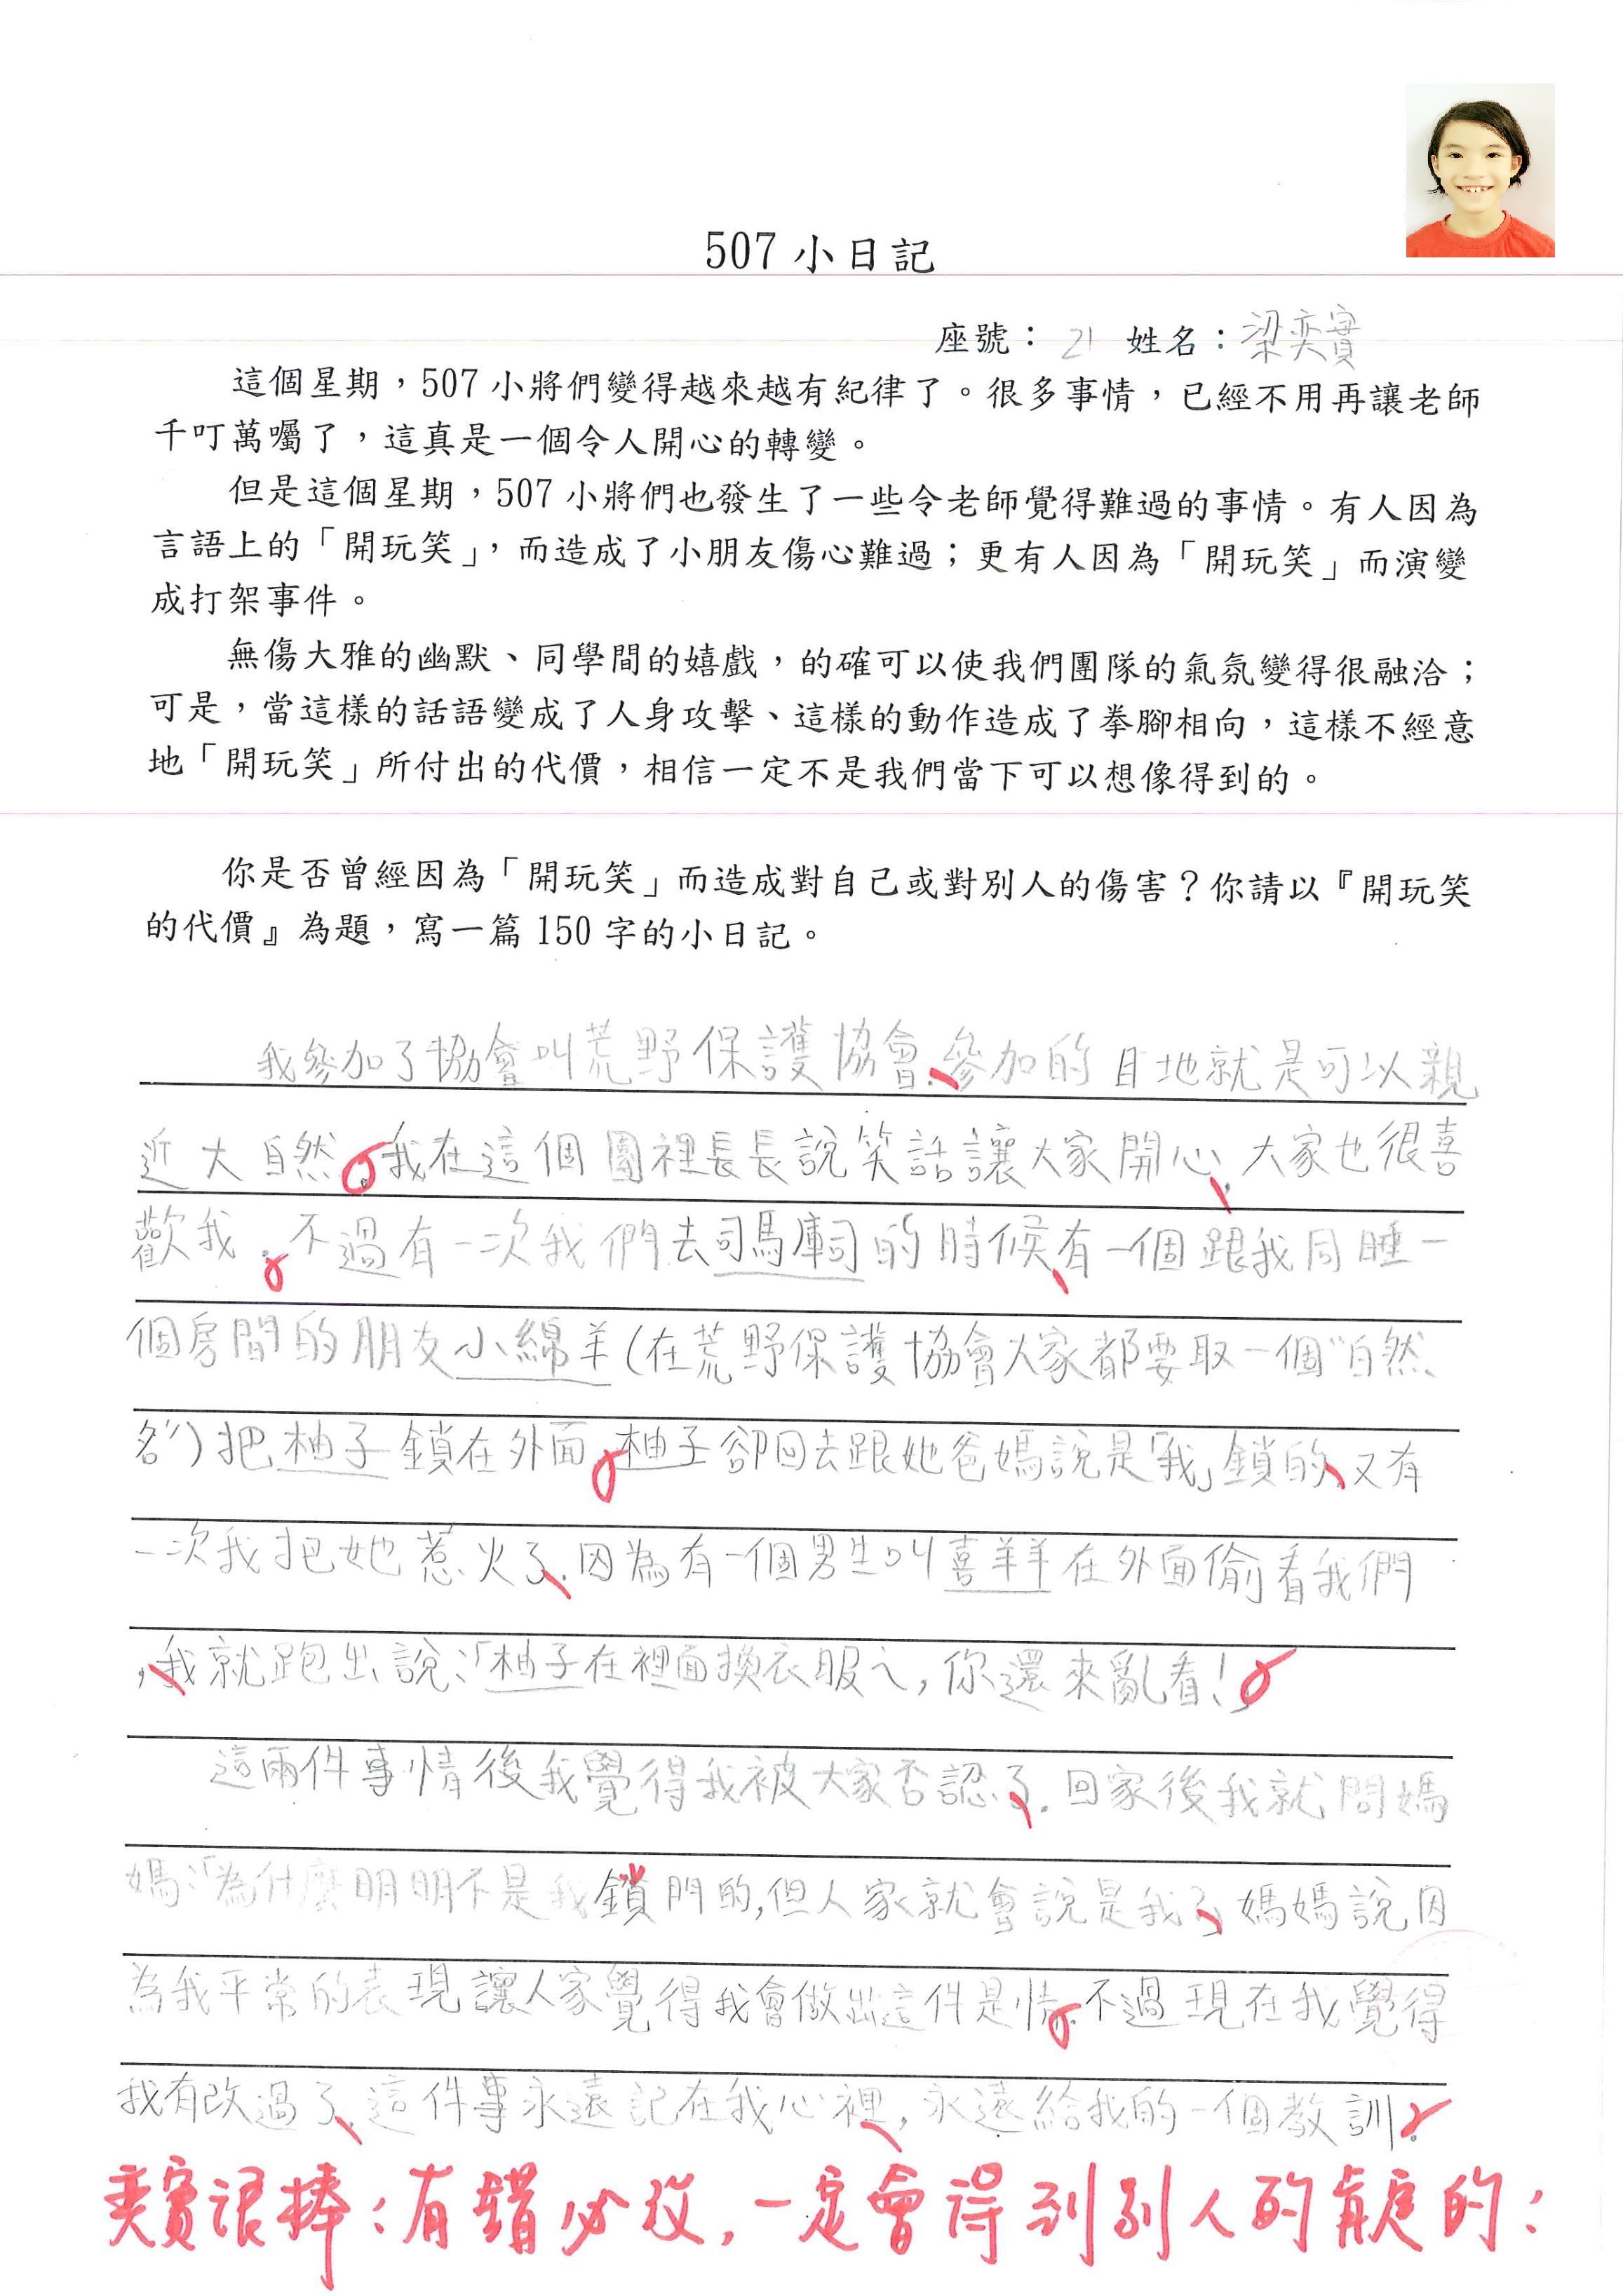 507 小日記
座號： 21 姓名：梁奕實
這個星期，507 小將們變得越來越有紀律了。很多事情，已經不用再讓老師
千叮萬囑了，這真是一個令人開心的轉變。
但是這個星期，507 小將們也發生了一些令老師覺得難過的事情。有人因為
言語上的「開玩笑」，而造成了小朋友傷心難過；更有人因為「開玩笑」而演變
成打架事件。
無傷大雅的幽默、同學間的嬉戲，的確可以使我們團隊的氣氛變得很融洽；
可是，當這樣的話語變成了人身攻擊、這樣的動作造成了拳腳相向，這樣不經意
地「開玩笑」所付出的代價，相信一定不是我們當下可以想像得到的。
你是否曾經因為「開玩笑」而造成對自己或對別人的傷害？你請以『開玩笑
的代價』為題，寫一篇 150 字的小日記。
我參加了協會叫荒野保護協會、參加的目地就是可以親
近大自然。我在這個團裡長長說笑話讓大家開心，大家也很喜
歡我。不過有一次我們去司馬庫司的時候，有一個跟我同睡一
個房間的朋友小綿羊(在荒野保護協會大家都要取一個"自然
名")把柚子鎖在外面。柚子卻回去跟她爸媽說是「我」鎖的，又有
一次我把她惹火了，因為有一個男生叫喜羊羊在外面偷看我們
，我就跑出說：「柚子在裡面換衣服ㄟ，你還來亂看！」
這兩件事情後我覺得我被大家否認了，回家後我就問媽
媽：「為什麼明明不是我鎖門的，但人家就會說是我」，媽媽說因
為我平常的表現讓人家覺得我會做出這件是情。不過現在我覺得
我有改過了，這件事永遠記在我心裡，永遠給我的一個教訓。
奕實很棒：有錯必改，一定會得到別人的肯定的：